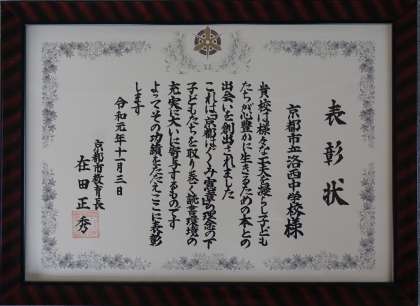 表彰状
京都市立洛西中学校様
貴校は様々な工夫を凝らし子ども
たちが心豊かに生きるための本との
出会いを創出されました
これは「京都はぐくみ憲章」の理念の下
子どもたちを取り巻く読書環境の
充実に大いに寄与するものです
よってその功績をたたえここに表彰
します
令和元年十一月三日
京都市教育長
在田正秀